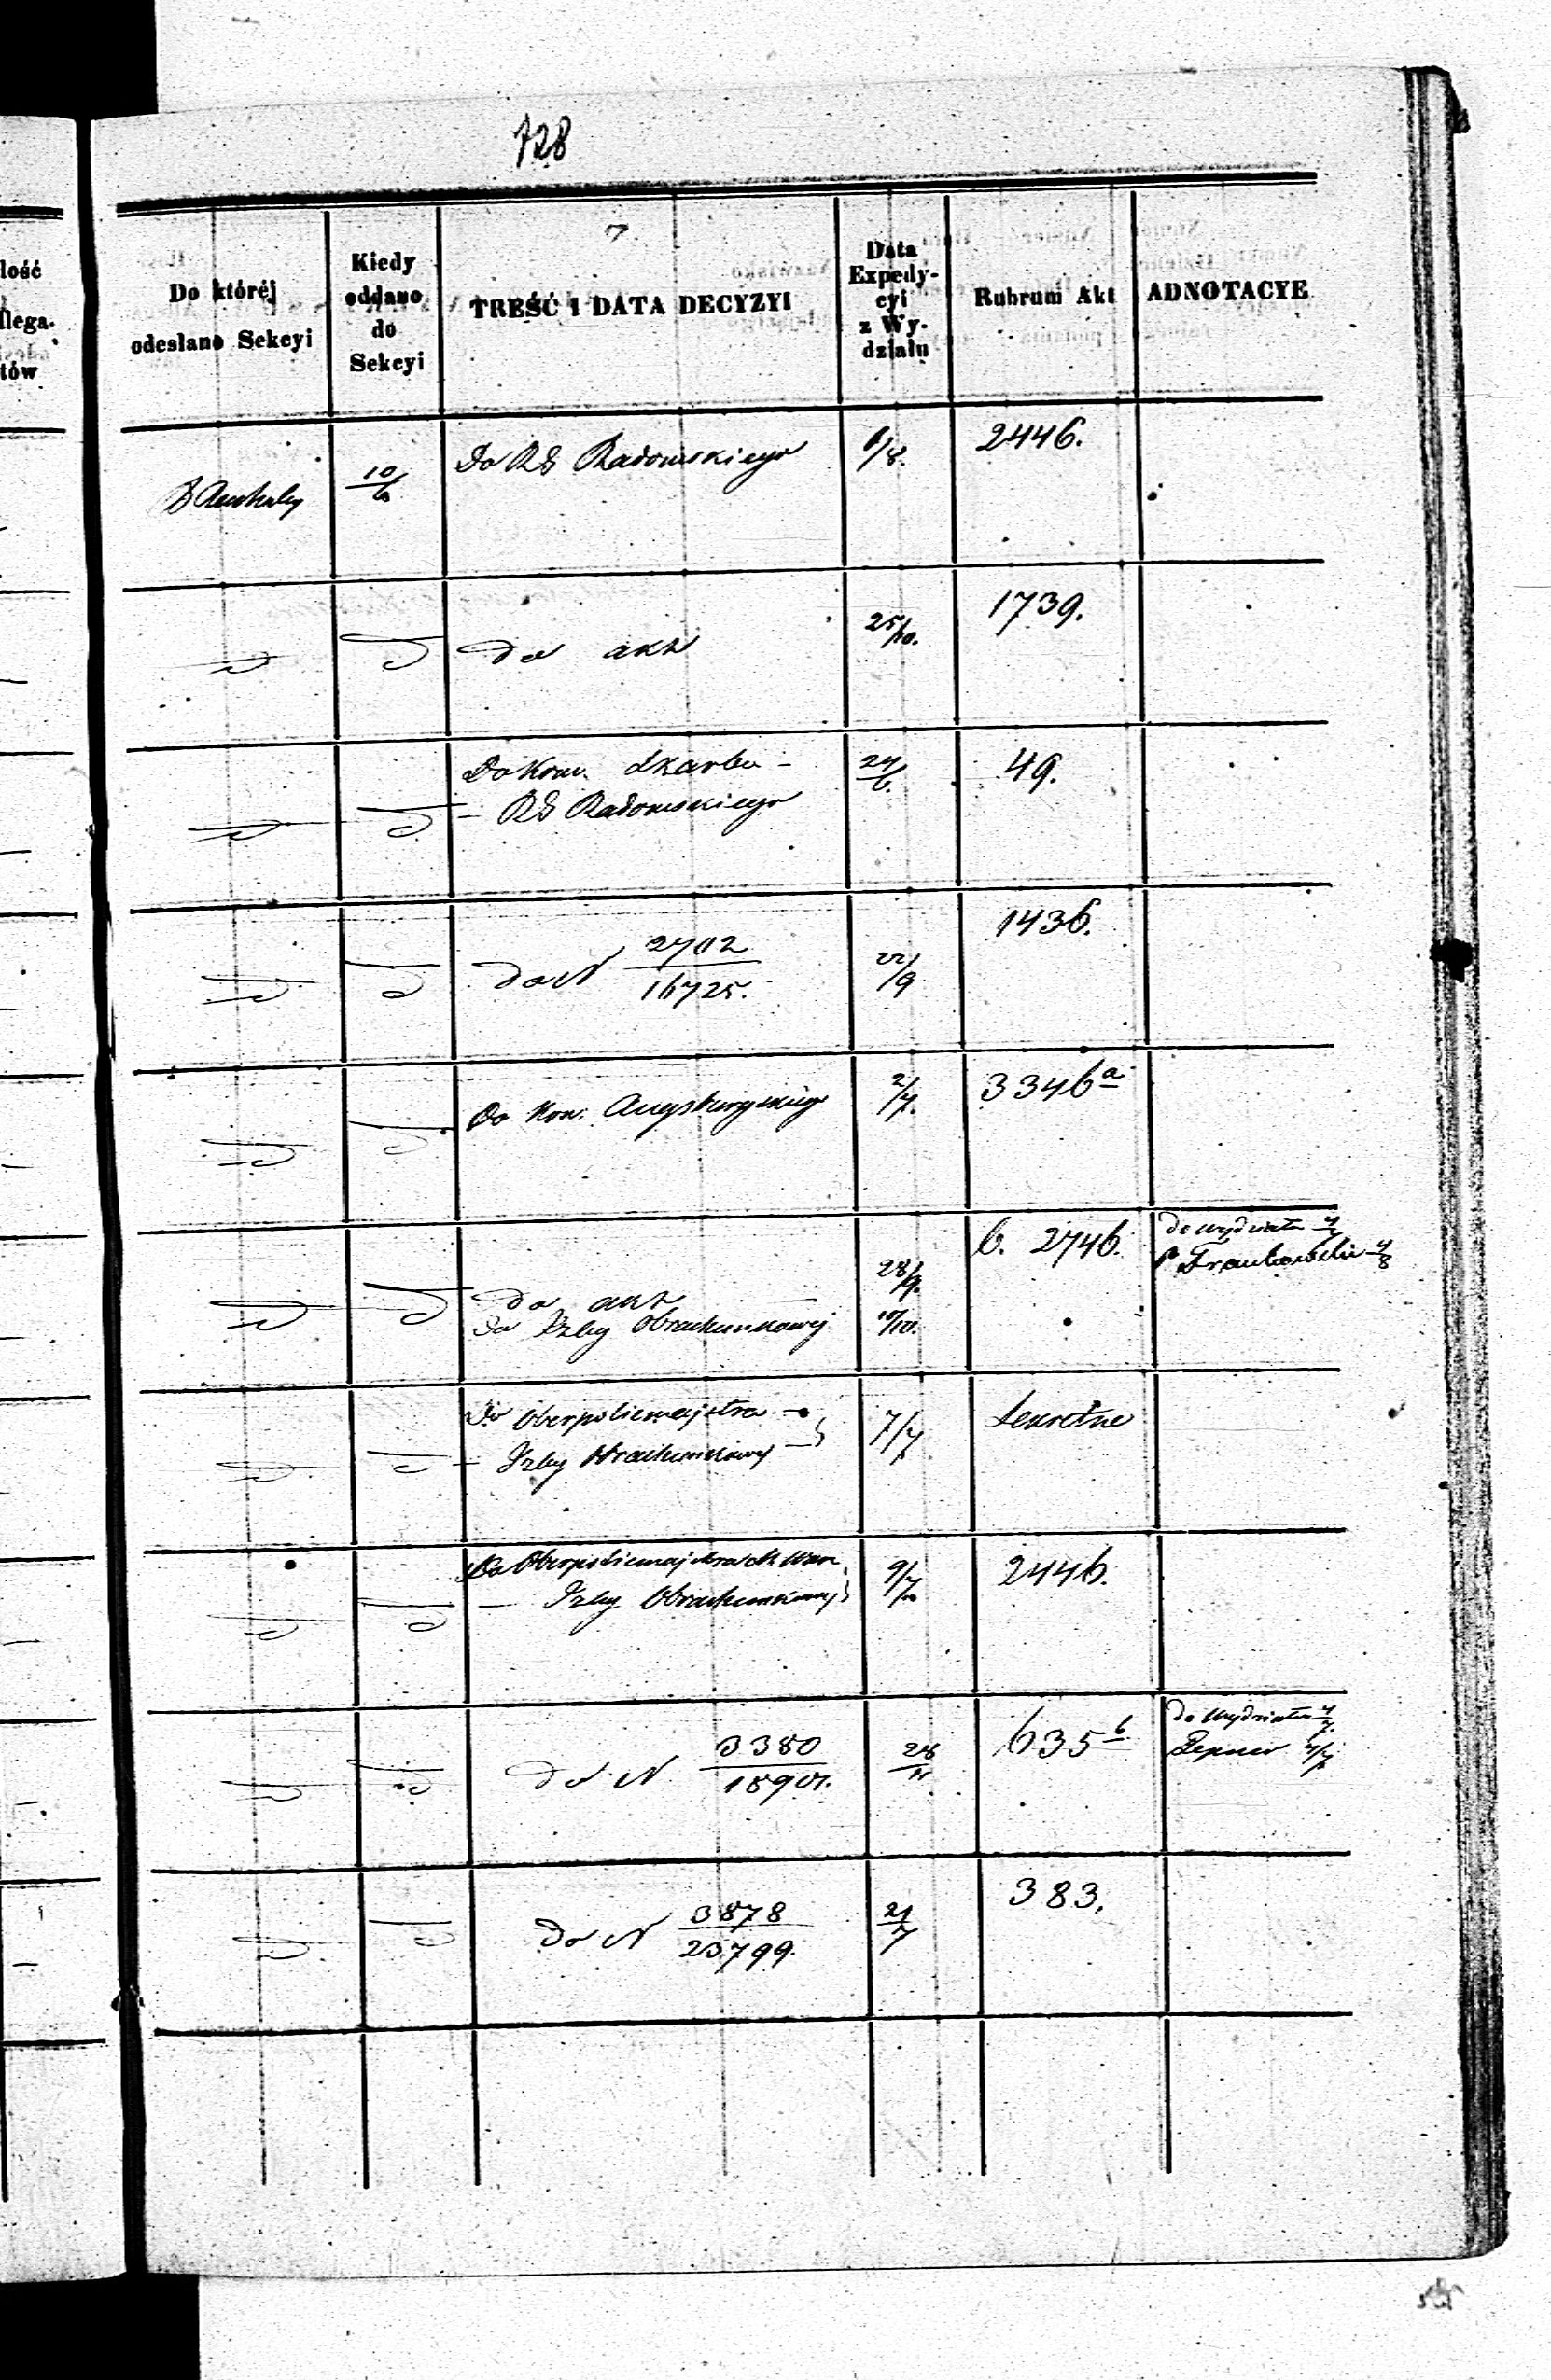 728
lość
llega-
tów
Do któréj
odesłano Sekcyi
Kiedy
oddano
do
Sekcyi
TREŚĆ I DATA DECYZYI
Data
Expedy-
cyi
z Wy-
działu
Rubrum Akt
ADNOTACYE
10/6
Do RG Radomskiego
6/8.
2446.
do akt
25/10.
1739.
Do Kom. Skarbu -
- RG Radomskiego
24/6.
49.
do N 2702/16725.
22/9
1436.
Do Kon: Augsburgskiego
2/7.
3346 a
do akt
Do Izby Obrachunkowej
28/9.
10/10.
6. 2746.
do wydziału 4/7
P Frankowski 4/8
Do Oberpolicmajstra
- Izby Obrachunkowej
7/7
Sekretne
Do Oberpolicmajstra M. Warsz.
- Izby Obrachunkowej
9/7
2446.
do N. 3380/18901.
28/11
635 b
do Wydziału 4/7.
4/7
do N 3878/23799.
21/7
383.